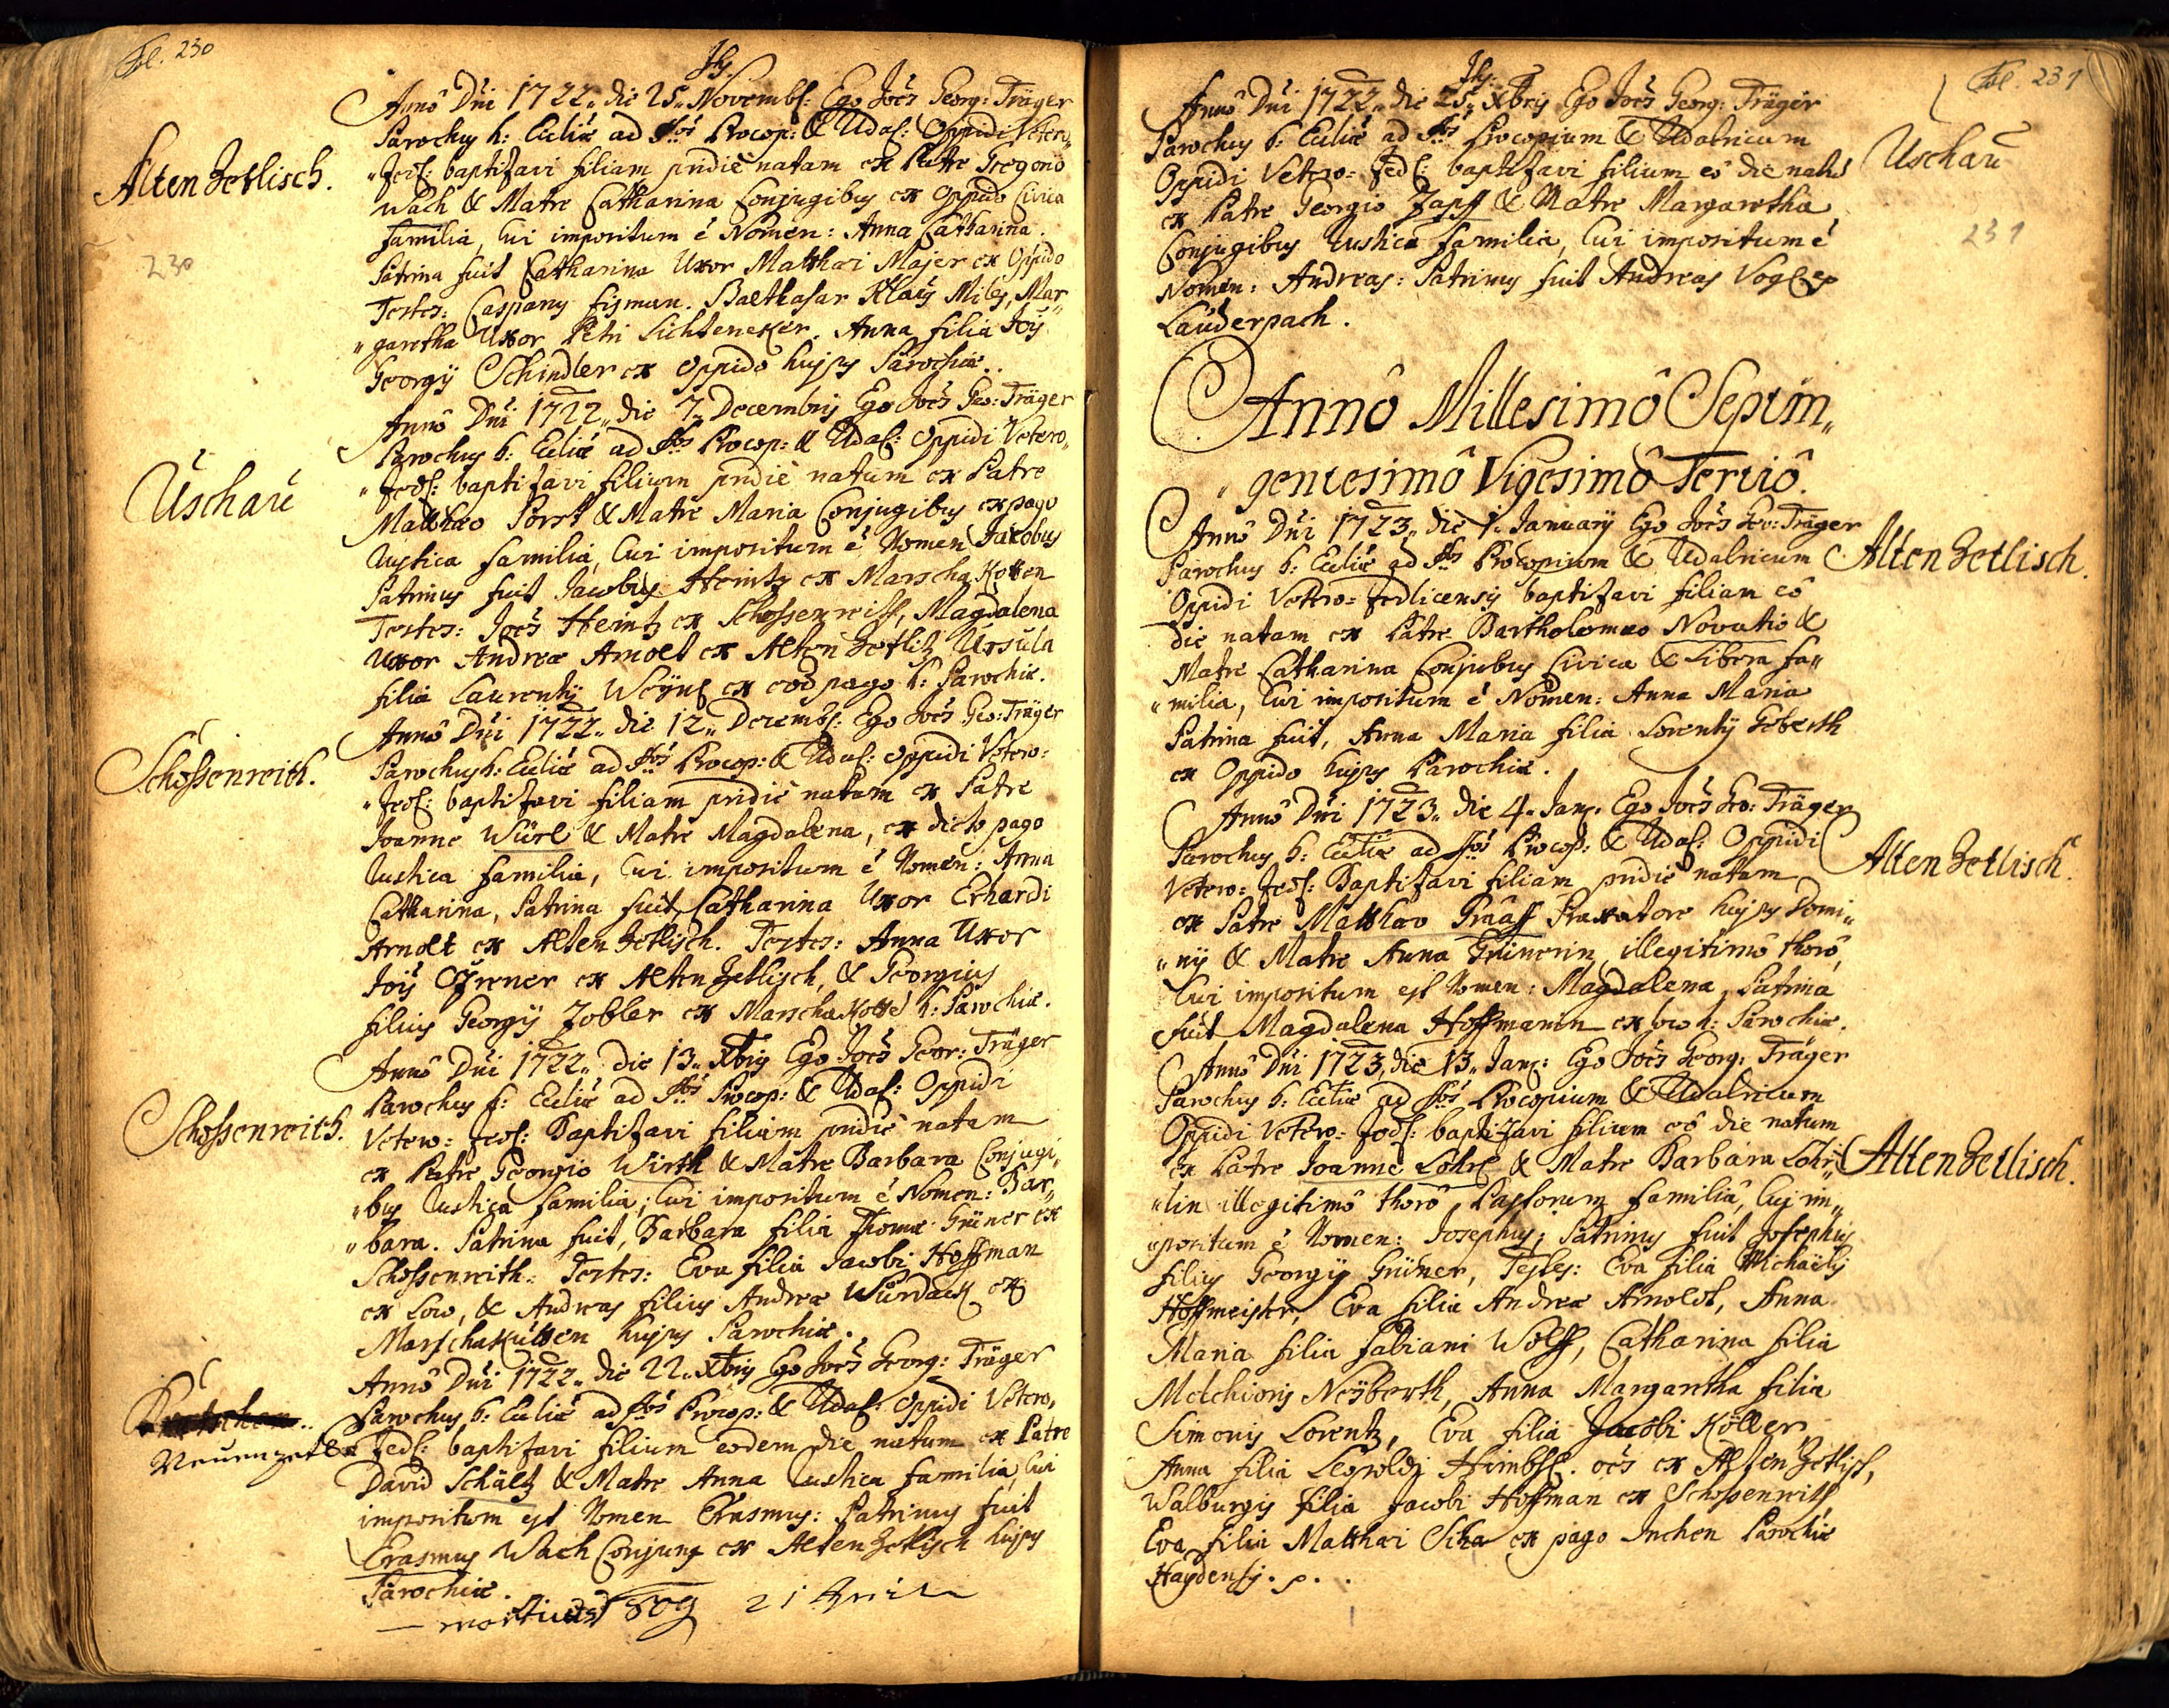 Fol. 230
Jhs
Annô Dni 1722„ die 25„ Novembr: Ego Joēs Georg: Träger
Alten Zetlisch.
Parochus h: Eccliæ ad Stos Procop: & Udal: Oppidi Vetero„
„Zedl: baptizavi filiam pridie natam ex Patre Gregorio
Wach & Matre Catharina Conjugibus ex Oppido Civica
familia, Cui impositum ê Nomen: Anna Catharina.
230
Patrina fuit Catharina Uxor Matthæi Majer ex Oppido
Testes: Casparus Eisman. Balthasar Klaus Miles, Mar„
„garetha Uxor Petri Lichteneker. Anna filia Jois
Georgij Schindler ex Oppido hujus Parochiæ.
Annô Dni 1722„ die 7„ Decembris Ego Joēs Geo: Träger
Parochus h: Eccliæ ad Stos Procop: & Udal: Oppidi Vetero„
Uschau
„Zedl: baptizavi filium pridie natum ex Patre
Matthæo Porst & Matre Maria Conjugibus ex pago
Rustica familia, Cui impositum ê Nomen Jacobus
Patrinus fuit Jacobus Heintz ex Marscha Kotten
Testes: Joēs Heintz ex Schossenreith, Magdalena
Uxor Andreæ Arnolt ex Alten Zetlitz Ursula
filia Laurentij ex eod pago h: Parochiæ.
Annô Dni 1722„ die 12„ Decembr: Ego Joēs Geo: Träger
Schossenreith.
Parochus h: Eccliæ ad Stos Procop: & Udal: Oppidi Vetero:
„Zedl: baptizavi filiam pridie natam ex Patre
Joanne Würl & Matre Magdalena, ex dicto pago
Rustica familia, Cui impositum ê Nomen: Anna
Catharina, Patrina fuit Catharina Uxor Erhardi
Arnolt ex Alten Zetlisch. Testes: Anna Uxor
Jois ex Alten Zetlisch, & Georgius
filius Georgij Zobler ex Marscha Kotte h: Parochiæ.
Annô Dni 1722„ die 13„ Xbris Ego Joēs Geor: Träger
Schossenreith.
Parochus h: Eccliæ ad Stos Procop: & Udal: Oppidi
Vetero: Zedl: Baptizavi filiam pridie natam
ex Patre Georgio Wirth & Matre Barbara Conjugi„
„bus Rustica familia; Cui impositum ê Nomen: Bar„
„bara. Patrina fuit, Barbara filia Thomæ Grüner ex
Schossenreith: Testes: Eva filia Jacobi Hoffman
ex Loco, & Andreas filius Andreæ ex
Marschakutten hujus Parochiæ.
Annô Dni 1722„ die 22„ Xbris Ego Joēs Georg: Träger
Parochus h: Eccliæ ad Stos Procop: & Udal: Oppidi Vetero„
Neuenzetl
Zedl: baptizavi filium eodem die natum ex Patre
David Schültz & Matre Anna Rustica familia, Cui
impositum est Nomen Erasmus: Patrinus fuit
Erasmus Wach Conjunx ex Alten Zetlisch hujus
Parochiæ.
— mortuus 1809 21 April
Fol. 231
Jhs:
Annô Dni 1722„ die 25„ Xbris Ego Joēs Georg: Träger
Parochus h: Eccliæ ad Stos Procopium & Udalricum
Uschau
Oppidi Vetero: Zedl: baptizavi filium eô die natū
ex Patre Georgio Zapff & Matre Margaretha
231
Conjugibus Rustica familia, Cui impositum ê
Nomen: Andreas: Patrinus fuit Andreas Vogl ex
Lauderpach.
Annô Millesimô Septin„
„gentesimô Vigesimô Tertiô.
Annô Dni 1723„ die 1. January Ego Joēs Geo: Träger
Alten Zetlisch.
Parochus h: Eccliæ ad Stos Procopium & Udalricum
Oppidi Vetero: Zedlicensis baptizavi filiam eô
die natam ex Patre Bartholomæo Novatio &
Matre Catharina Conjubus Civica & Libera fa„
„milia, Cui impositum ê Nomen: Anna Maria
Patrina fuit, Anna Maria filia Lorentij Geberth
ex Oppido hujus Parochiæ.
Annô Dni 1723„ die 4„ Jan: Ego Joēs Geo: Träger
Parochus h: Eccliæ ad Stos Procop: & Udal: Oppidi
Alten Zetlisch.
Vetero: Zedl: Baptizavi filiam pridie natam
ex Patre Matthæo Graff Braxatore hujus Domi„
„nij & Matre Anna Grünerin, illegitimô thorô,
Cui impositum est Nomen: Magdalena, Patrina
fuit Magdalena Hoffmanin ex loco h: Parochiæ.
Annô Dni 1723„ die 13„ Jan: Ego Joēs Georg: Träger
Parochus h: Eccliæ ad Stos Procopium & Udalricum
Oppidi Vetero: Zedl: baptizavi filium eô die natum
Alten Zetlisch.
ex Patre Joanne Löhrl & Matre Barbara Löhr„
„lin illegitimô thorô, Pastorum familiâ, Cuj im„
„positum ê Nomen: Josephus; Patrinus fuit Josephus
filius Georgij Grüner, Testes: Eva filia Michaëlis
Hoffmeister, Eva filia Andreæ Arnoldt, Anna
Maria filia Fabiani Wolff, Catharina filia
Melchioris Neyberth, Anna Margaretha filia
Simonis Lorentz, Eva filia Jacobi Köller,
Anna filia Leopoldi oēs ex Alten Zetlisch,
Walburgis filia Jacobi Hoffman ex Schossenreith
Eva filia Matthæi ex pago Inchen Parochiæ
Haydensis.